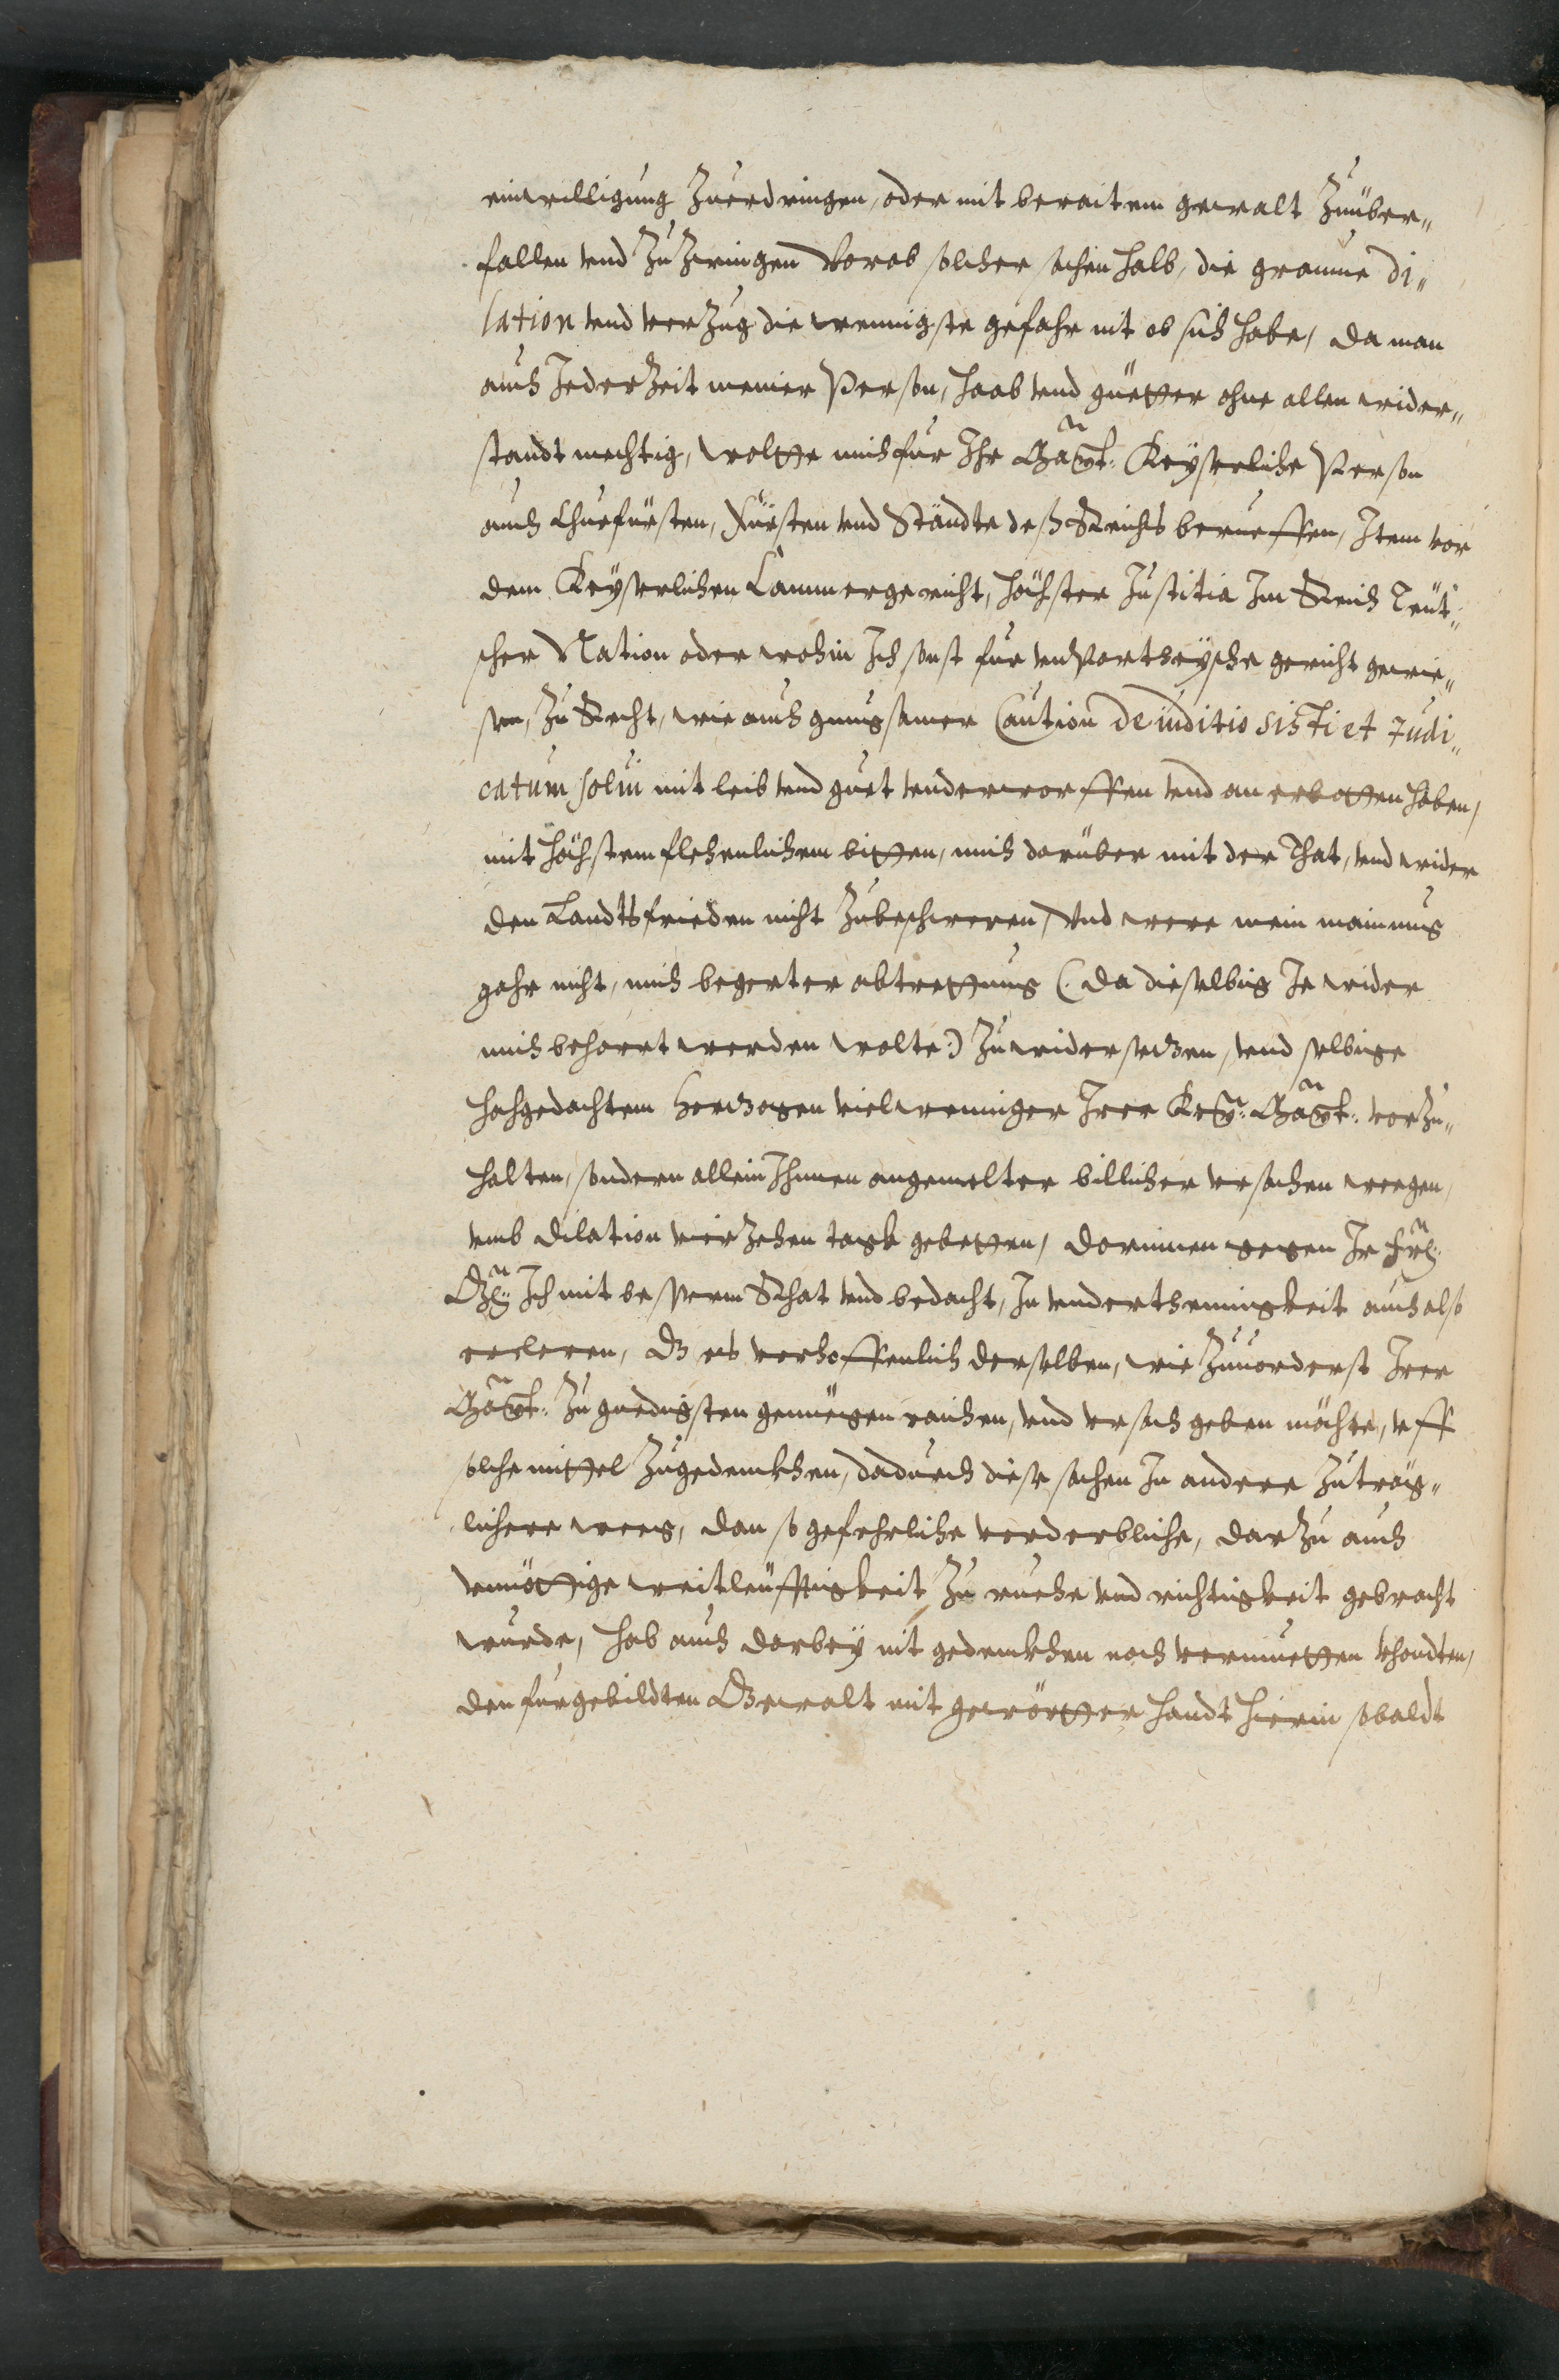 einwilligung Zuerdringen, oder mit beraitem gewalt Zuüber„
fallen vnd Zu Zwingen Vorab solcher sachen halb, die geraume di„
lation vnd verzug die wenigste gefahr nit ob sich habe, da man
auch Jederzeit meiner Person, haab vnd güetter ohne allen wider„
standt mechtig, wolte mich für Ihr Maytt: Keyserliche Person
auch Churfürsten, Fürsten vnd Ständte deß Reichs berueffen, Item vor
dem Keyserlichen Cammergericht, höchster Justitia Im Reich Teut„
scher Nation oder wohin Ich sonst für vnPartheysche gericht gewie„
sen, Zu Recht, wie auch gnugsamer Caution De iuditio sisti et Judi„
catum solui mit leib vnd guet vnderworffen vnd an erbotten haben,
mit höchstem flehenlichem bitten, mich darüber mit der That, vnd wider
den Landtsfrieden nicht Zubeschweren, Vnd were mein mainung
gahr nicht, mich begerter abtrettung (: da dieselbig Je wider
mich beharrt werden wolte:) Zuwidersetzen, vnd selbige
hochgedachtem Hertzogen vielweniger Irer Key: Maytt: vorZu„
halten, sondern allein Ihnen angemelter billicher vrsachen wegen,
vmb dilation vierZehen tagk gebetten, darinnen gegen Ir Frl:
Gn: Ich mit besserm Rhat vnd bedacht, In vnderthenigkeit auch also
ercleren, dz es verhoffenlich derselben, wie Zuuorderst Irer
Maytt: Zu gnedigsten genüegen raichen, vnd vrsach geben möchte, vff
solche mittel Zugedenckhen, dadurch diese sachen In andere Zuträg„
lichere weeg, dan so gefehrliche verderbliche, darzu auch
vnnöttige weitleüffigkeit Zu ruehe vnd richtigkeit gebracht
wurde, hab auch darbey nit gedenckhen noch vermuetten khondten,
den furgebildten Gewalt mit gewörtter handt hierin sobaldt